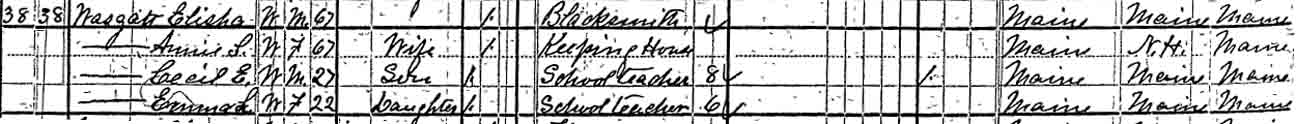 38 38 Wasgatt Elisha W M 67 1 Blacksmith Maine Maine Maine
—— Annie L. W F 67 Wife 1 Keeping House Maine N.H. Maine
—— Cecil E. W M 27 Son 1 School teacher 8 1 Maine Maine Maine
—— Emma L W F 22 Daughter 1 School teacher 6 Maine Maine Maine